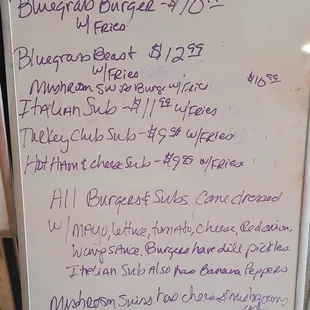 Bluegrass Burger - $10
w/Fries
Bluegrass Beast $12.99
w/Fries
Mushroom Swiss Burger w/Fries $10.99
Italian Sub - $11.99 w/Fries
Turkey Club Sub - $9.99 w/Fries
Hot Ham & Cheese Sub - $9.99 w/Fries
All Burgers & Subs Come dressed
w/ mayo, lettuce, tomato, cheese, Red onion,
Sauce. Burgers have dill pickles
Italian Sub Also has Banana Peppers
Mushroom Swiss has cheese & mushrooms